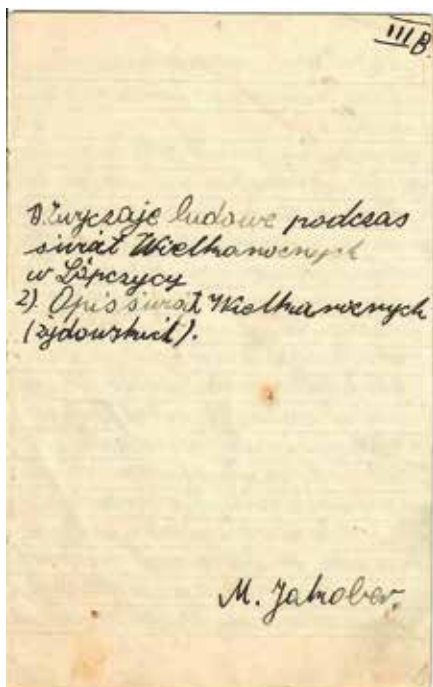 III B.
1) Zwyczaje ludowe podczas
świąt Wielkanocnych
w Łapczycy
2). Opis świąt Wielkanocnych
(żydowskich).
M. Jakober.